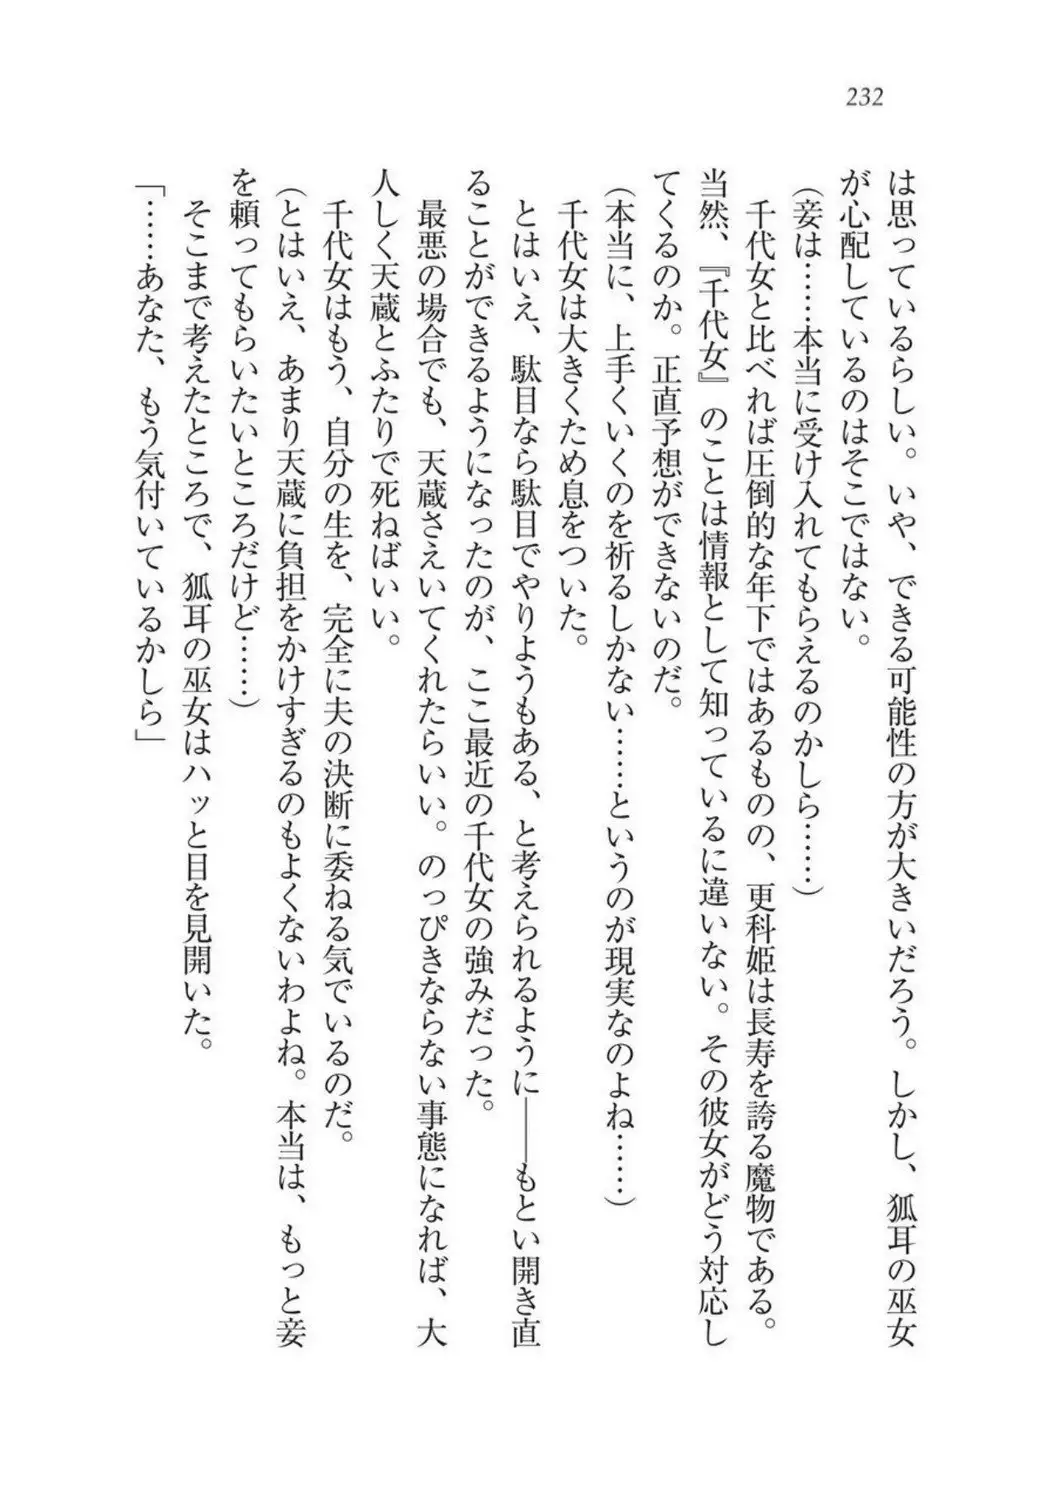 232
は思っているらしい。いや、できる可能性の方が大きいだろう。しかし、狐耳の巫女
が心配しているのはそこではない。
(妾は……本当に受け入れてもらえるのかしら……)
　千代女と比べれば圧倒的な年下ではあるものの、更科姫は長寿を誇る魔物である。
当然、『千代女』のことは情報として知っているに違いない。その彼女がどう対応し
てくるのか。正直予想ができないのだ。
(本当に、上手くいくのを祈るしかない……というのが現実なのよね……)
　千代女は大きくため息をついた。
　とはいえ、駄目なら駄目でやりようもある、と考えられるように――もとい開き直
ることができるようになったのが、ここ最近の千代女の強みだった。
　最悪の場合でも、天蔵さえいてくれたらいい。のっぴきならない事態になれば、大
人しく天蔵とふたりで死ねばいい。
　千代女はもう、自分の生を、完全に夫の決断に委ねる気でいるのだ。
(とはいえ、あまり天蔵に負担をかけすぎるのもよくないわよね。本当は、もっと妾
を頼ってもらいたいところだけど……)
　そこまで考えたところで、狐耳の巫女はハッと目を見開いた。
「……あなた、もう気付いているかしら」